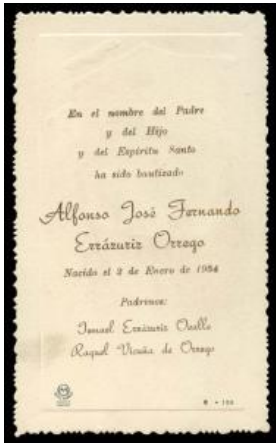 En el nombre del Padre
y del Hijo
y del Espíritu Santo
ha sido bautizado
Alfonso José Fernando
Errázuriz Orrego
Nacido el 2 de Enero de 1954
Padrinos:
Ismael Errázuriz Ovalle
Raquel Vicuña de Orrego